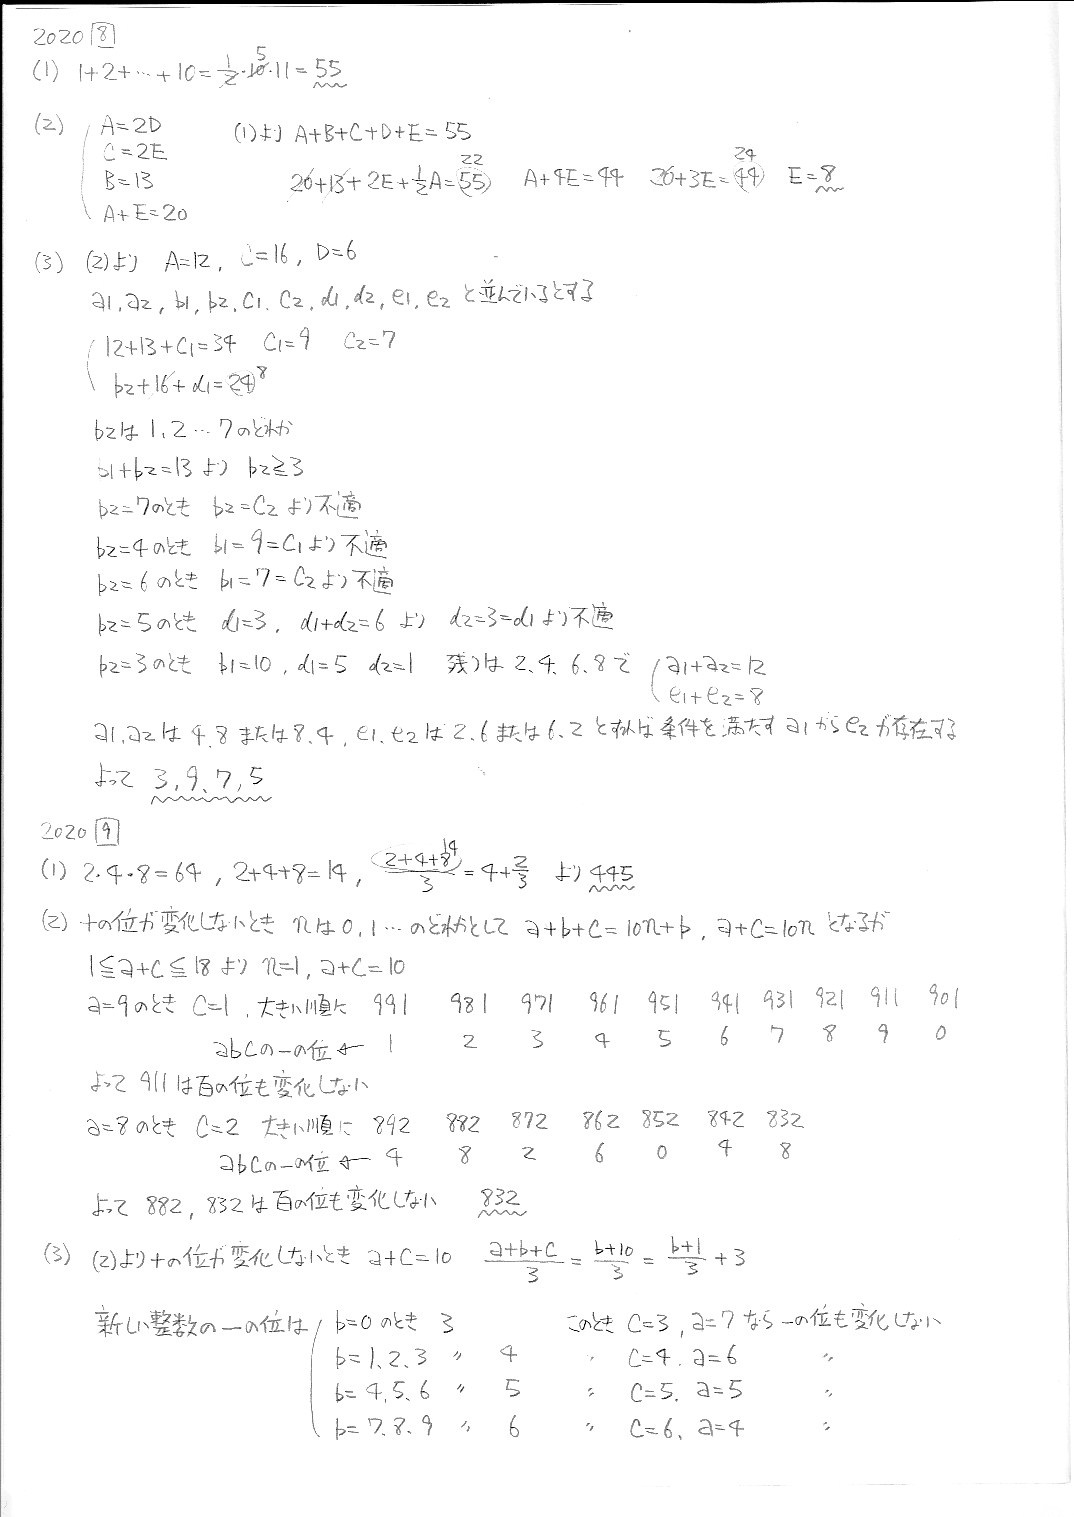 2020 8
(1) 1+2+…+10=1/2・10・11=55
5
(2) A=2D (1)より A+B+C+D+E=55
C=2E
B=13 20+13+2E+1/2A=55 22 A+4E=44 20+3E=44 24 E=8
A+E=20
(3) (2)より A=12, C=16, D=6
a1,a2,b1,b2,c1,c2,d1,d2,e1,e2 と並んでいるとする
12+13+c1=34 c1=9 c2=7
b2+16+d1=24 8
b2は 1,2…7のどれか
b1+b2=13より b2≧3
b2=7のとき b2=c2より不適
b2=4のとき b1=9=c1より不適
b2=6のとき b1=7=c2より不適
b2=5のとき d1=3, d1+d2=6より d2=3=d1より不適
b2=3のとき b1=10, d1=5 d2=1 残りは2,4,6,8で a1+a2=12
e1+e2=8
a1,a2は4,8または8,4, e1,e2は2,6または6,2とすれば条件を満たすa1からe2が存在する
よって 3,9,7,5
2020 9
(1) 2・4・8=64, 2+4+8=14, (2+4+8)/3=4+2/3 より 445
14
(2) 十の位が変化しないとき nは0,1…のどれかとして a+b+c=10n+b, a+c=10n となるが
1≦a+c≦18より n=1, a+c=10
a=9のとき c=1, 大きい順に 991 981 971 961 951 941 931 921 911 901
abcの一の位← 1 2 3 4 5 6 7 8 9 0
よって 911は百の位も変化しない
a=8のとき c=2 大きい順に 892 882 872 862 852 842 832
abcの一の位← 4 8 2 6 0 4 8
よって 882, 832は百の位も変化しない 832
(3) (2)より十の位が変化しないとき a+c=10 (a+b+c)/3=(b+10)/3=(b+1)/3+3
新しい整数の一の位は b=0のとき 3 このとき c=3, a=7なら一の位も変化しない
b=1,2,3 〃 4 〃 c=4, a=6 〃
b=4,5,6 〃 5 〃 c=5, a=5 〃
b=7,8,9 〃 6 〃 c=6, a=4 〃